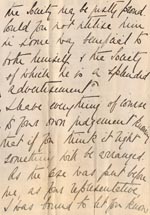 the Society may be justly proud
could you not utilise him
in some way beneficial to
both himself & the Society
of which he is a splendid
advertisement
I leave everything of course
to your own judgement
that if you think it right
something will be arranged
As the case was put before
me, as your representative,
I was bound to let you know